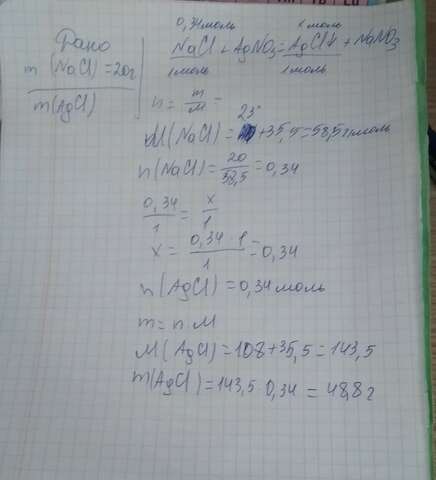 Дано
m (NaCl) = 20г
m(AgCl)
0,34моль x моль
NaCl + AgNO₃ = AgCl↓ + NaNO₃
1моль 1моль
n = m/M
23
M(NaCl) = +35,5=58,5г/моль
n(NaCl) = 20/58,5 = 0,34
0,34/1 = x/1
x = 0,34·1/1 = 0,34
n(AgCl) = 0,34 моль
m = n·M
M(AgCl) = 108+35,5 = 143,5
m(AgCl) = 143,5·0,34 = 48,8г